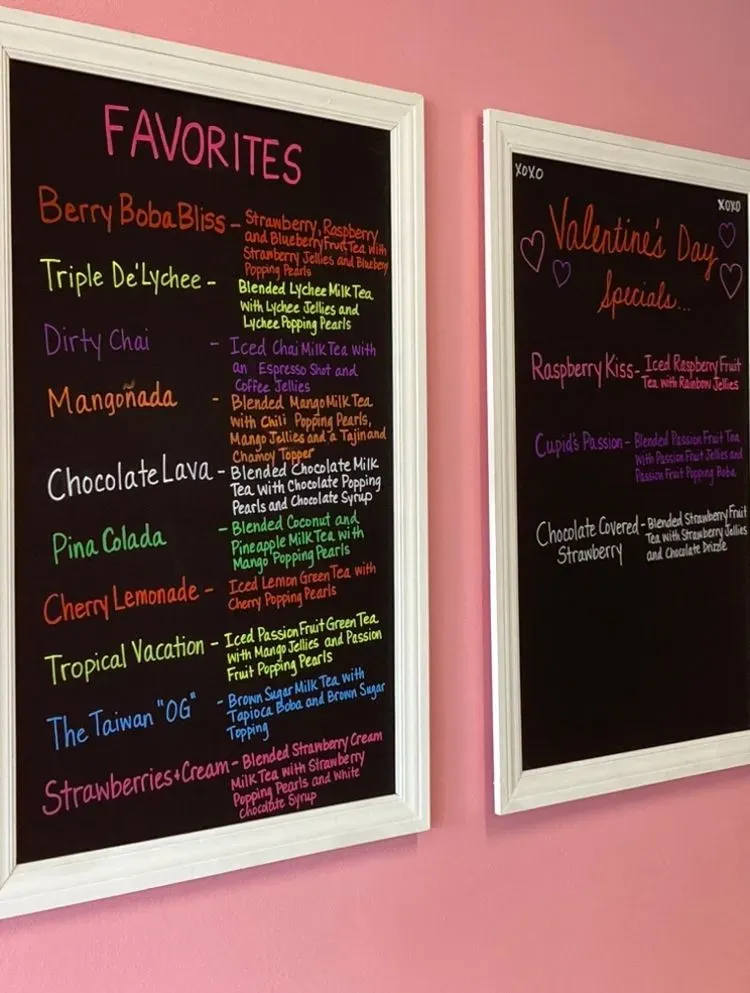 FAVORITES
Berry Boba Bliss - Strawberry, Raspberry
and Blueberry Fruit Tea with
Strawberry Jellies and Blueberry
Popping Pearls
Triple De'Lychee - Blended Lychee Milk Tea
with Lychee Jellies and
Lychee Popping Pearls
Dirty Chai - Iced Chai Milk Tea with
an Espresso Shot and
Coffee Jellies
Mangoñada - Blended Mango Milk Tea
with Chili Popping Pearls,
Mango Jellies and a Tajin and
Chamoy Topper
Chocolate Lava - Blended Chocolate Milk
Tea with Chocolate Popping
Pearls and Chocolate Syrup
Pina Colada - Blended Coconut and
Pineapple Milk Tea with
Mango Popping Pearls
Cherry Lemonade - Iced Lemon Green Tea with
Cherry Popping Pearls
Tropical Vacation - Iced Passion Fruit Green Tea
with Mango Jellies and Passion
Fruit Popping Pearls
The Taiwan "OG" - Brown Sugar Milk Tea with
Tapioca Boba and Brown Sugar
Topping
Strawberries + Cream - Blended Strawberry Cream
Milk Tea with Strawberry
Popping Pearls and White
Chocolate Syrup
XOXO
XOXO
Valentine's Day
Specials...
Raspberry Kiss - Iced Raspberry Fruit
Tea with Rainbow Jellies
Cupid's Passion - Blended Passion Fruit Tea
with Passion Fruit Jellies and
Passion Fruit Popping Boba
Chocolate Covered - Blended Strawberry Fruit
Strawberry Tea with Strawberry Jellies
and Chocolate Drizzle